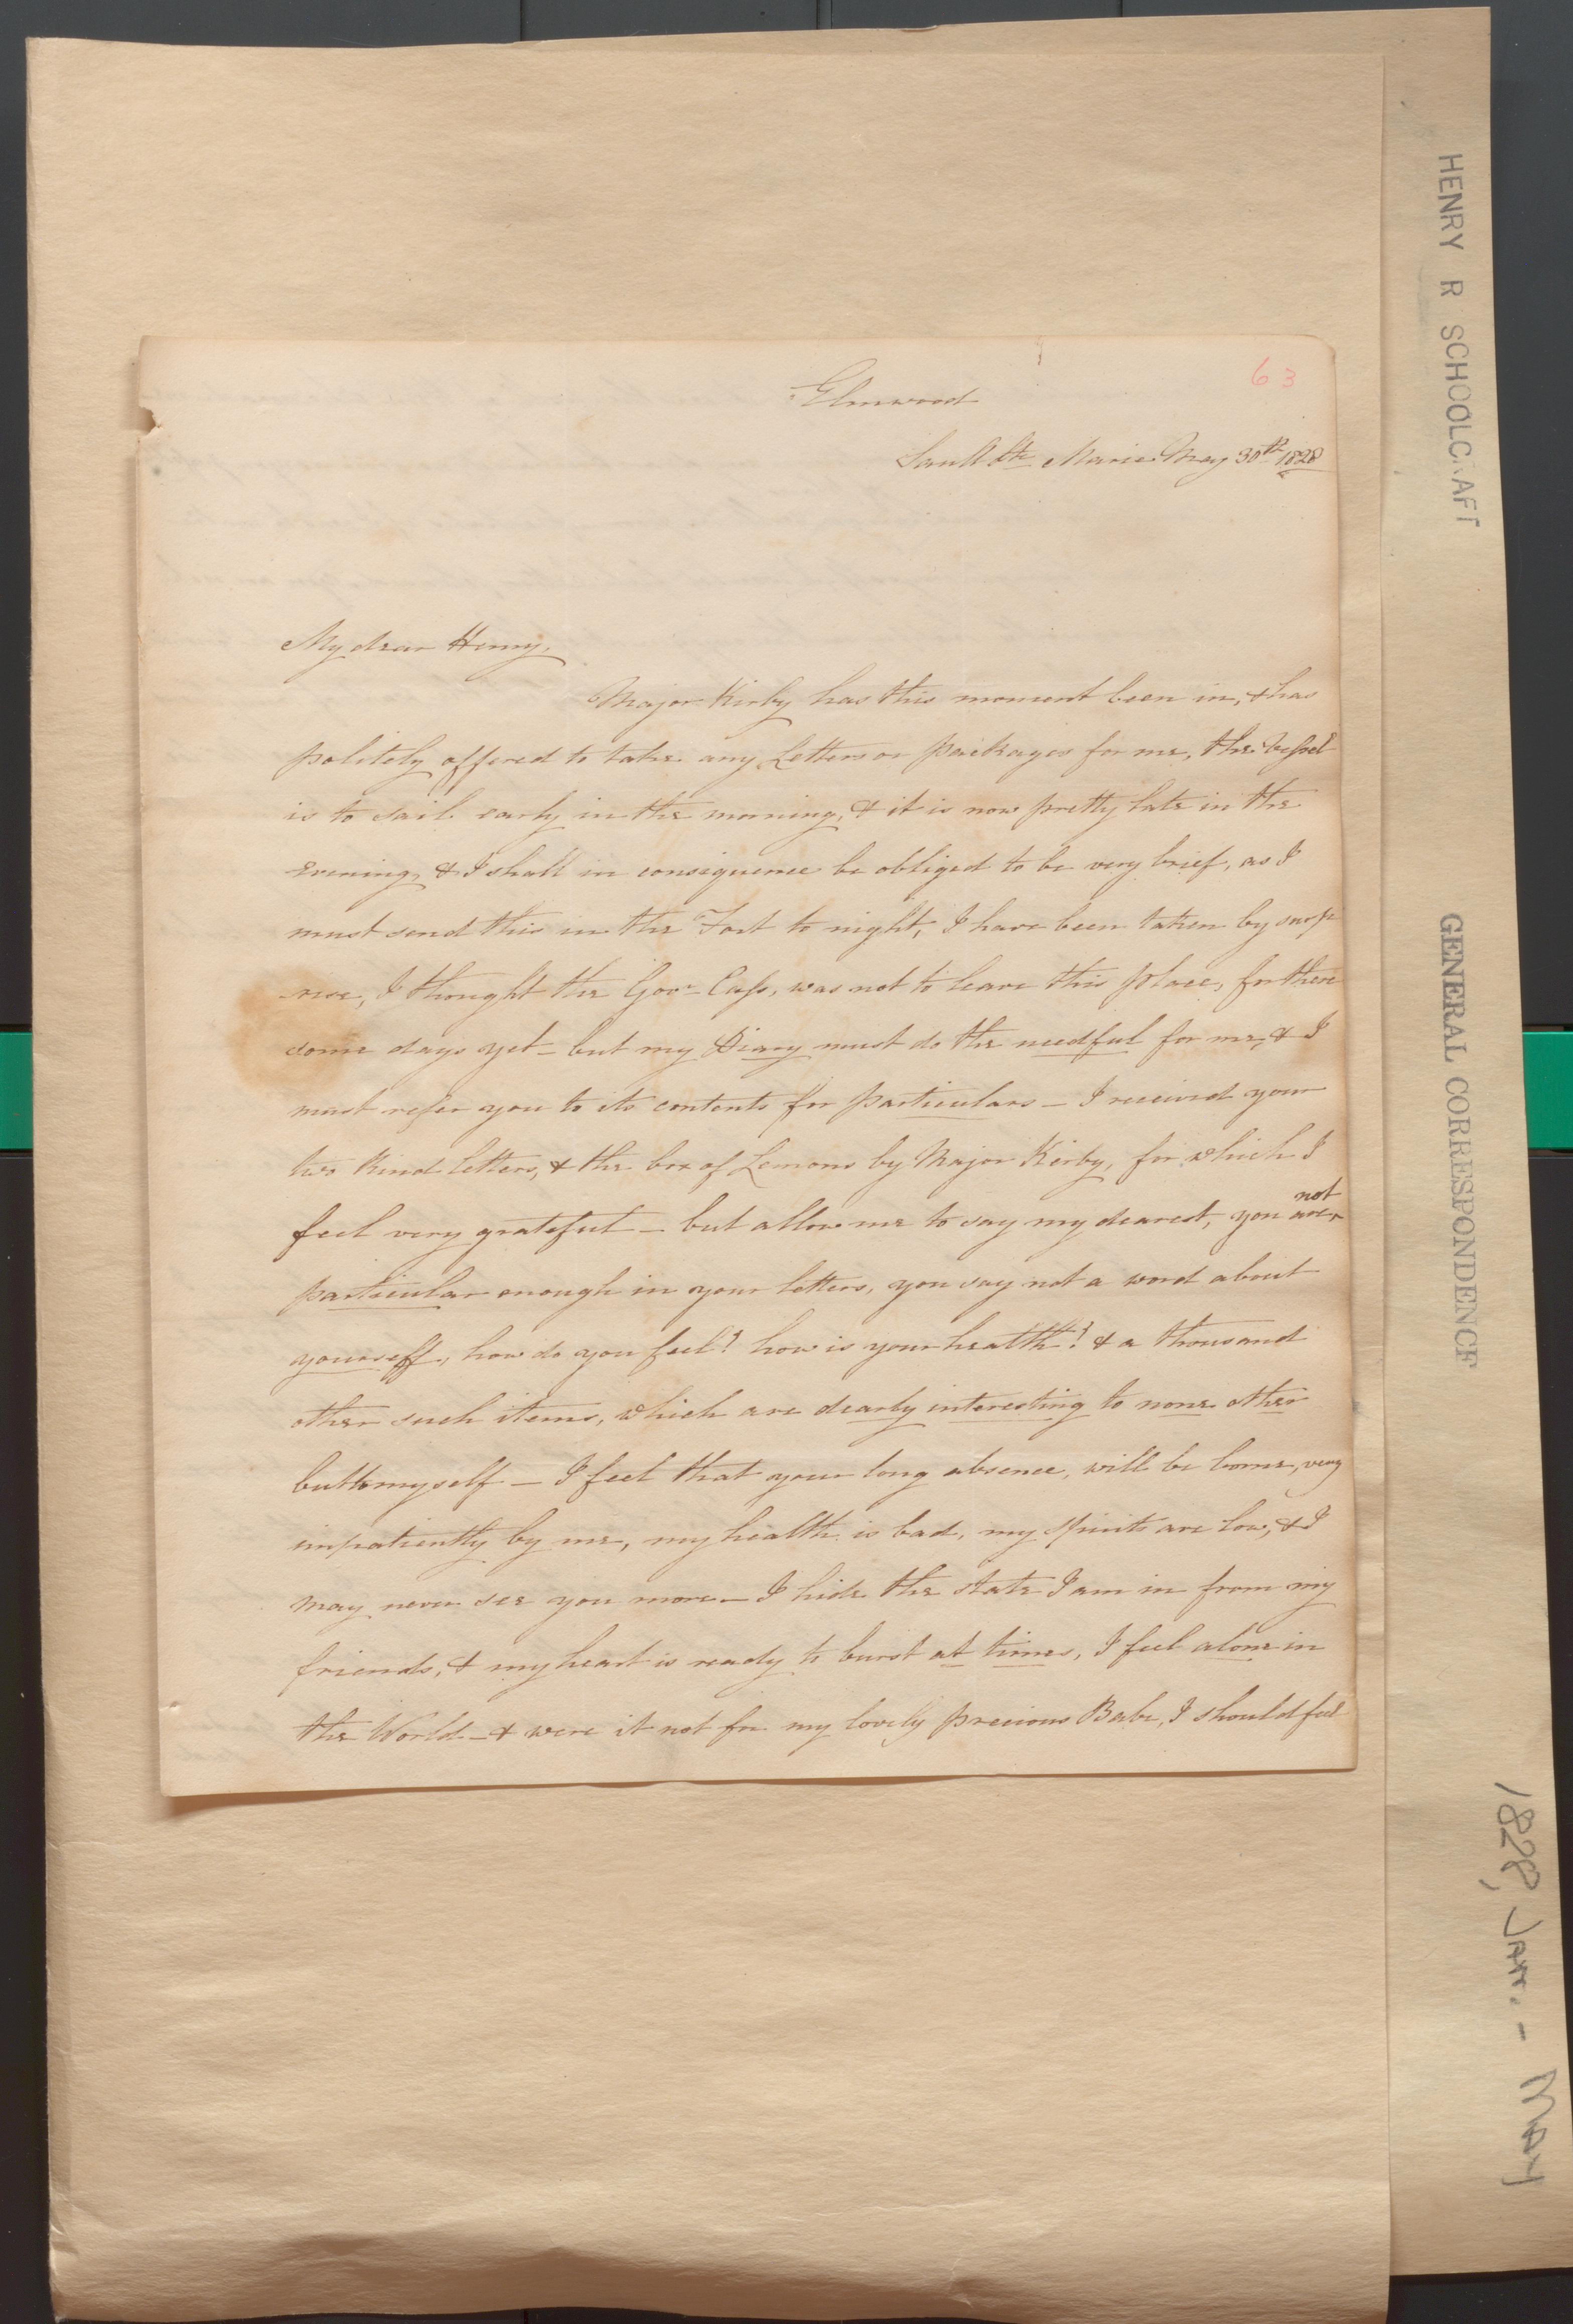 63
Elmwood
Sault Ste Marie May 30th 1828
My dear Henry,
Major Kirby has this moment been in, & has
politely offered to take any Letters or packages for me, the vessel
is to sail early in the morning, & it is now pretty late in the
Evening, & I shall in consequence be obliged to be very brief, as I
must send this in the Fort to night, I have been taken by surp
rise, I thought the Govr Cass, was not to leave this place, for
some days yet - but my Diary must do the needful for me, & I
must refer you to its contents for particulars - I received your
two kind letters, & the box of Lemons by Major Kirby, for which I
feel very grateful - but allow me to say my dearest, you are not
particular enough in your letters, you say not a word about
yourself, how do you feel? how is your health? & a thousand
other such items, which are dearly interesting to none other
but to myself - I feel that your long absence, will be borne, very
impatiently by me, my health is bad, my spirits are low, & I
may never see you more - I hide the state I am in from my
friends, & my heart is ready to burst at times, I feel alone in
the World - & were it not for my lovely precious Babe, I should feel
HENRY R SCHOOLCRAFT
GENERAL CORRESPONDENCE
1828, Jan. - May